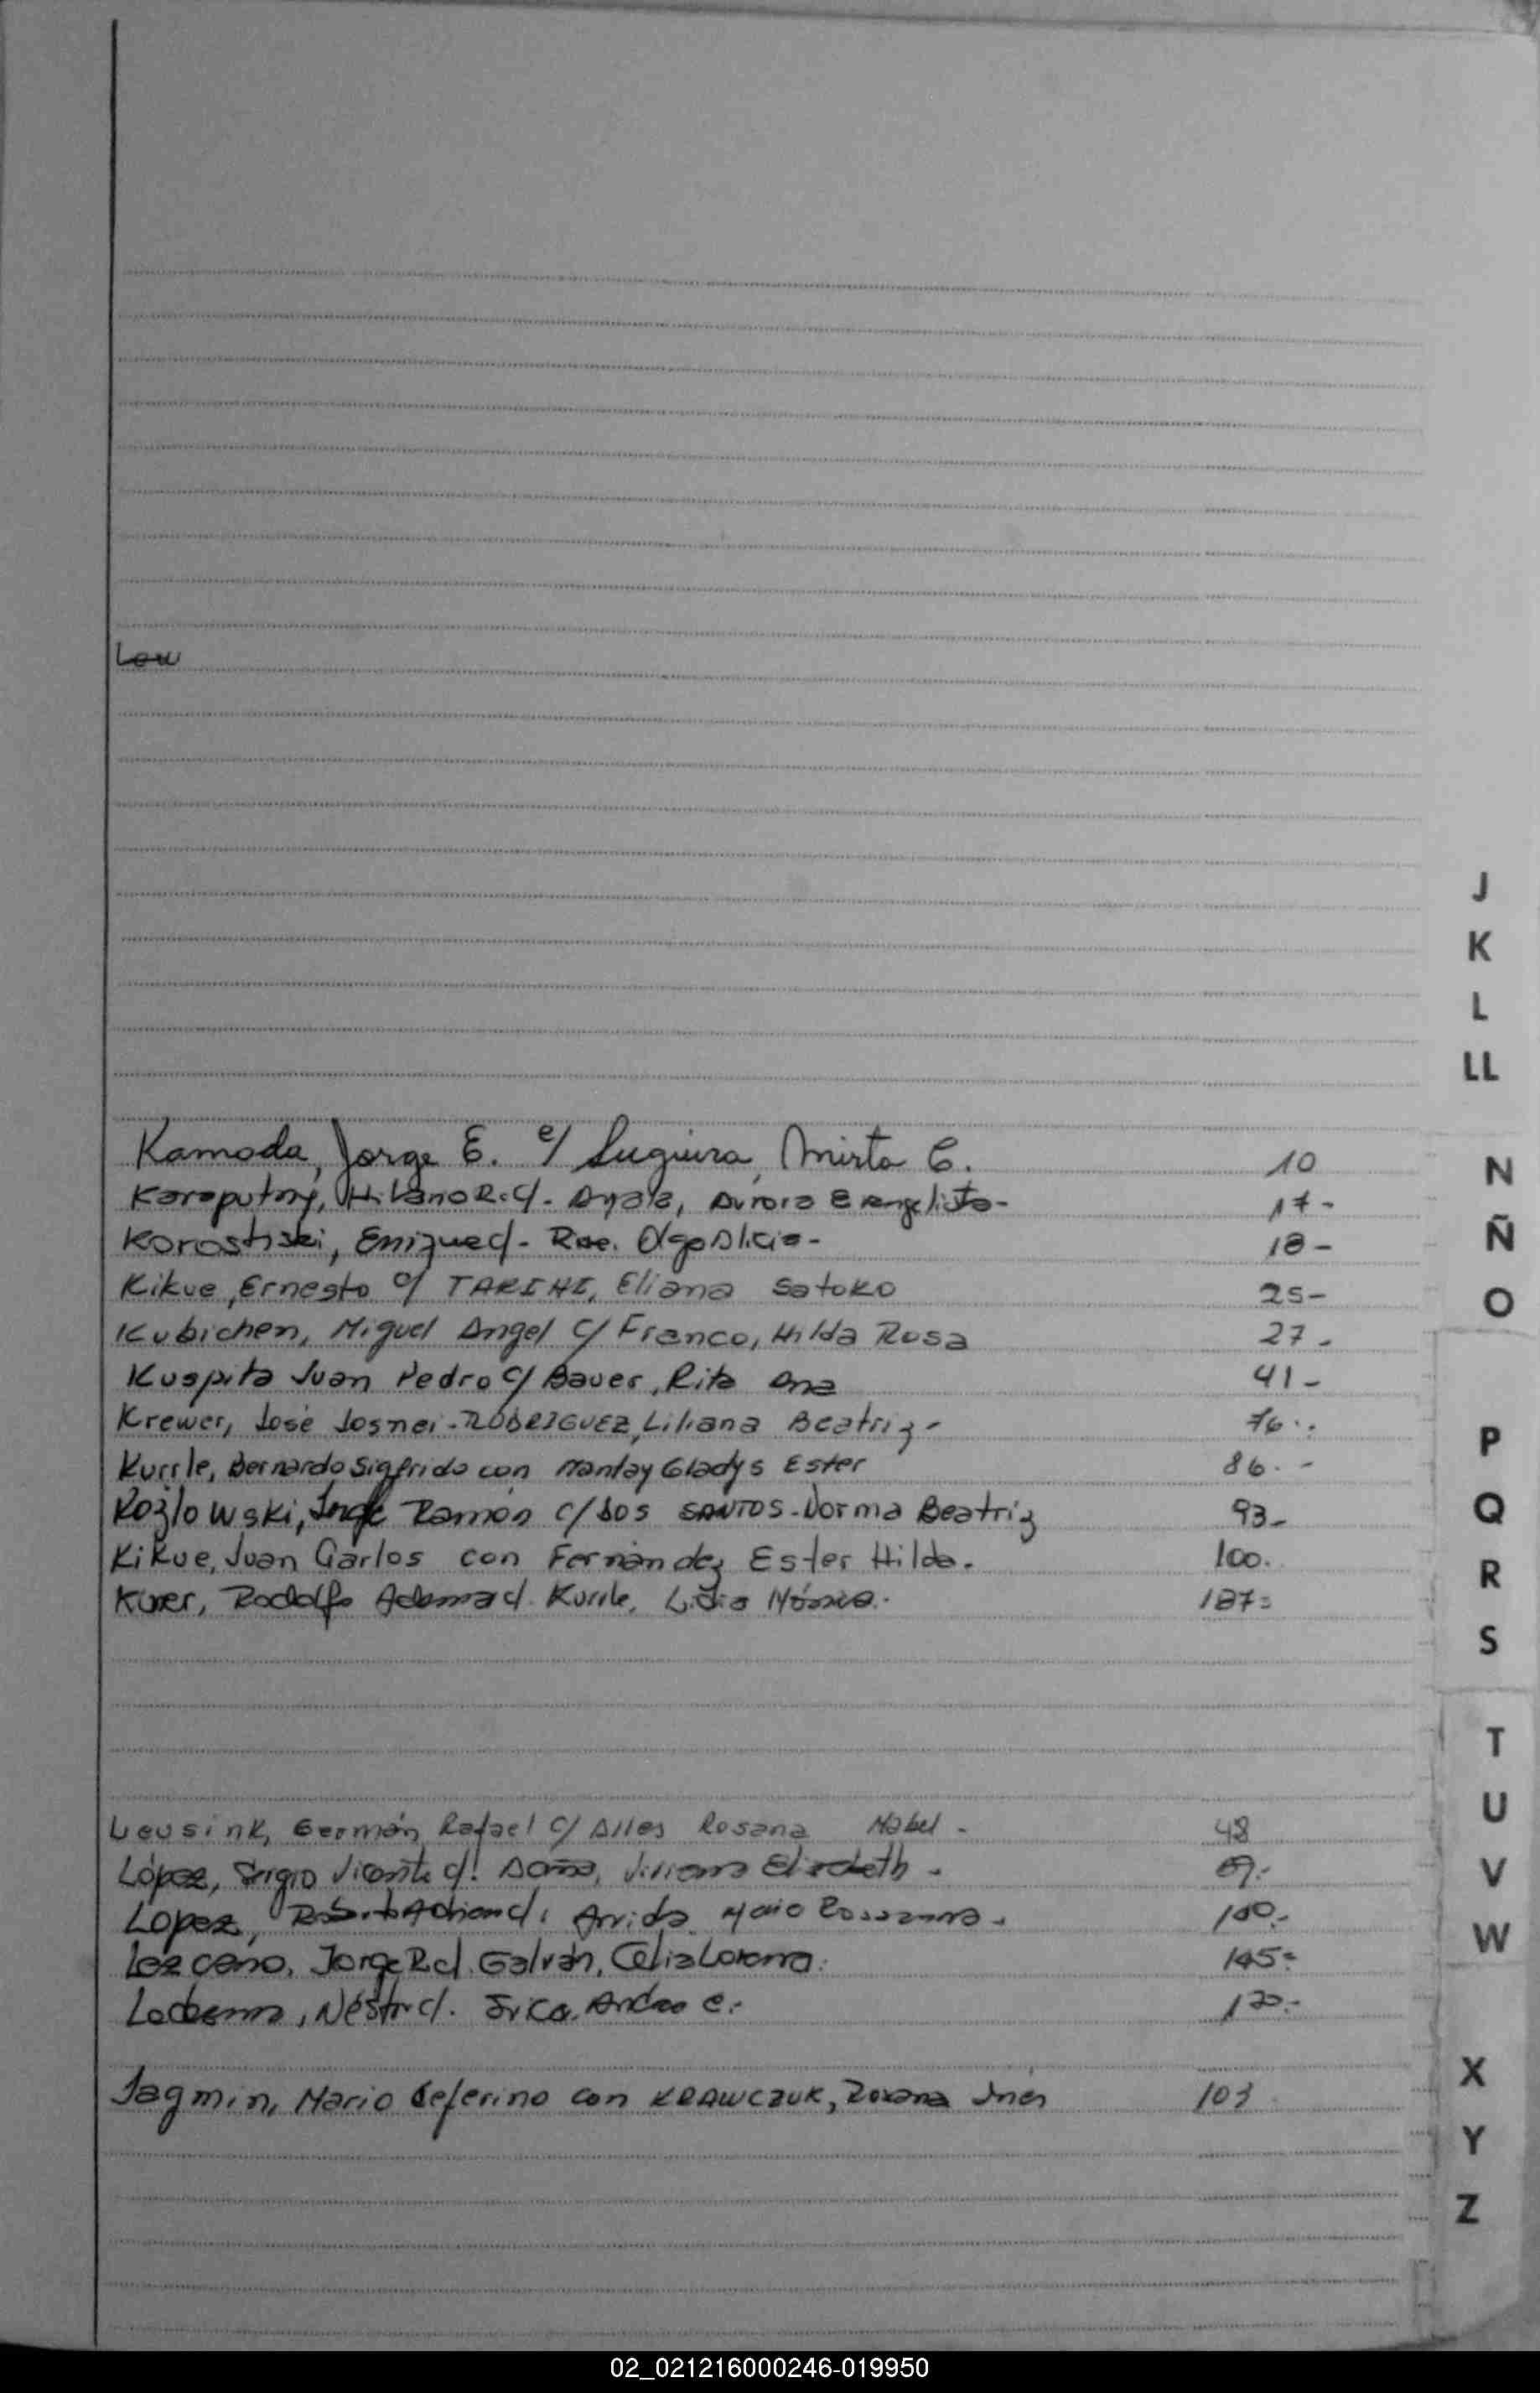 Kamoda, Jorge E. c/ Sugiura, Mirta C. 10
Karaputny, Hilario R. c/. Ayala, Aurora Evangelista- 17-
Korostiski, Enrique c/- Roe. Olga Alicia- 18-
Kikue, Ernesto c/ TARIHI, Eliana Satoko 25-
Kubichen, Miguel Angel c/ Franco, Hilda Rosa 27-
Kuspita Juan Pedro c/ Bauer, Rita Ana 41-
Krewer, José Josnei-RODRIGUEZ, Liliana Beatriz- 76.-
Kurrle, Bernardo Sigfrido con Mantay Gladys Ester 86.-
Kozlowski, Jorge Ramón c/ Dos SANTOS-Norma Beatriz 93-
Kikue, Juan Carlos con Fernández Ester Hilda. 100.
Kurer, Rodolfo c/. Kurrle, Lidia Mónica.- 187=
J
K
L
LL
N
Ñ
O
P
Q
R
S
T
U
V
W
X
Y
Z
Leusink, Germán Rafael c/ Alles Rosana Mabel- 48
López, Sergio Vicente c/. Viviana Elizabeth-
Lopez, Roberto Adrian c/. Arrida
Lezcano, Jorge R. c/. Galván, Celia Lorena. 145=
Néstor c/.
Jagmin, Mario Ceferino con KRAWCZUK, Roxana Inés 103
02_021216000246-019950